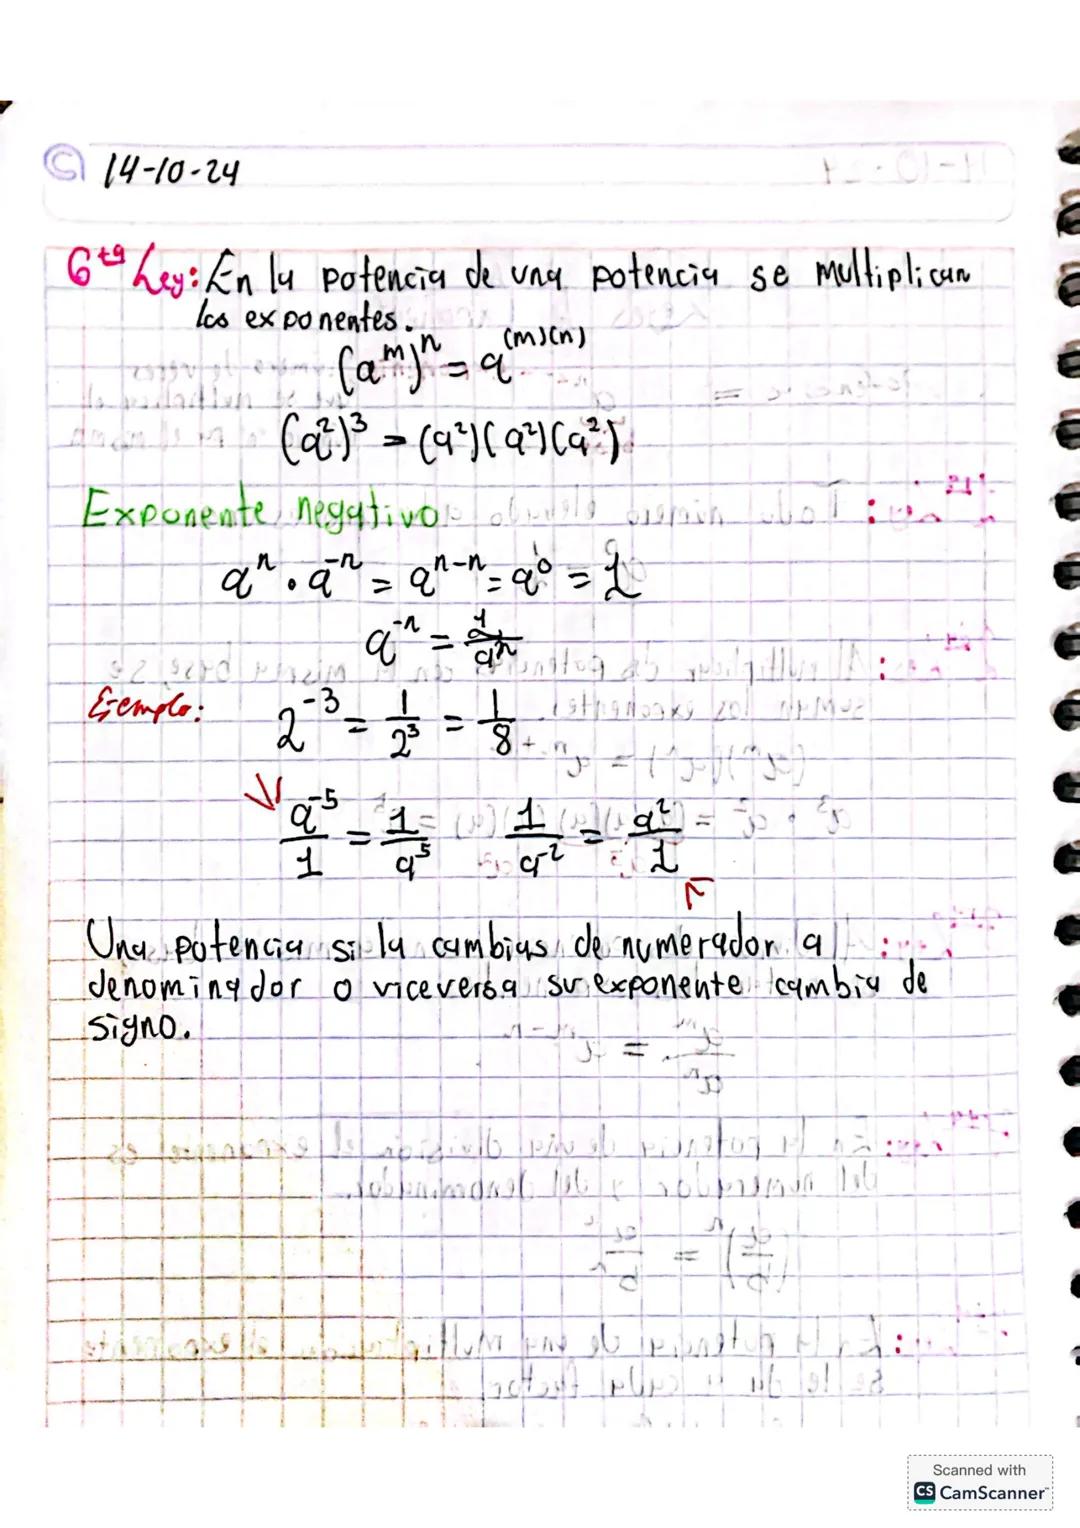 14-10-24
6ta Ley: En la potencia de una potencia se multiplican
los exponentes.
(a^m)^n = a^(m)(n)
(a²)³ = (a²)(a²)(a²)
Exponente negativo
a^n · a^-n = a^n-n = a^0 = 1
a^-n = 1/a^n
Ejemplo: 2^-3 = 1/2³ = 1/8
a^-5/1 = 1/a^5 1/a^-2 = a²/1
Una potencia si la cambias de numerador a
denominador o viceversa su exponente cambia de
signo.
Scanned with
CS CamScanner